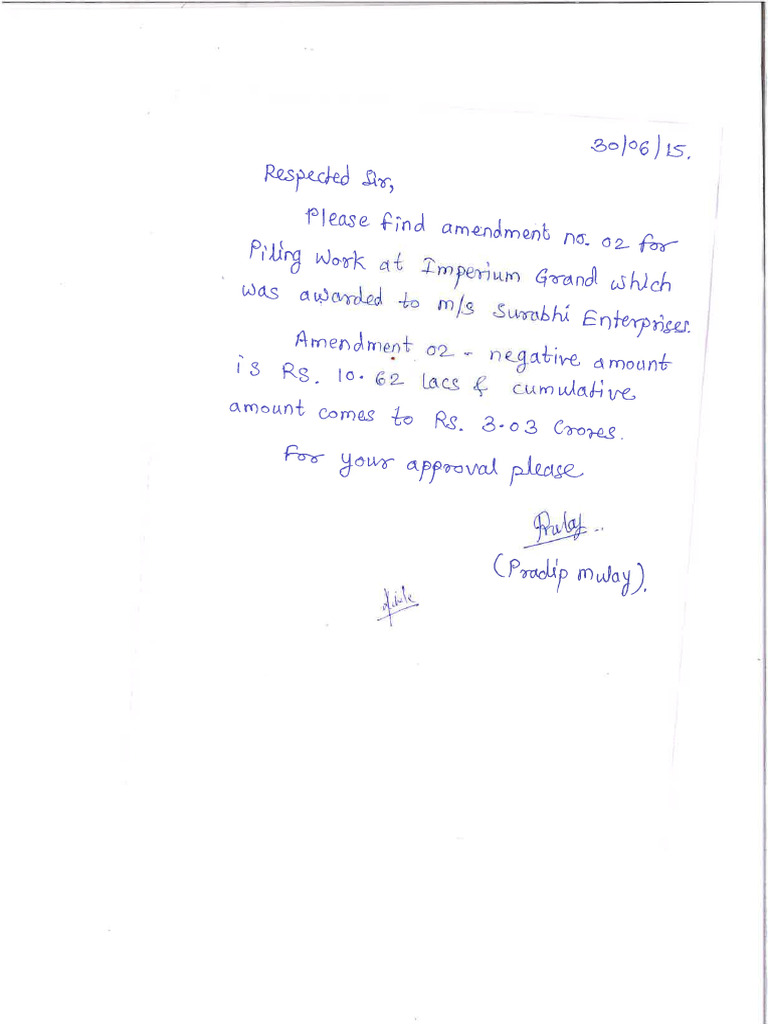 30/06/15.
Respected Sir,
Please find amendment no. 02 for
Piling Work at Imperium Grand which
was awarded to m/s Surabhi Enterprises.
Amendment 02 - negative amount
is RS. 10.62 lacs & cumulative
amount comes to RS. 3.03 Crores.
For your approval please
(Pradip Mulay).